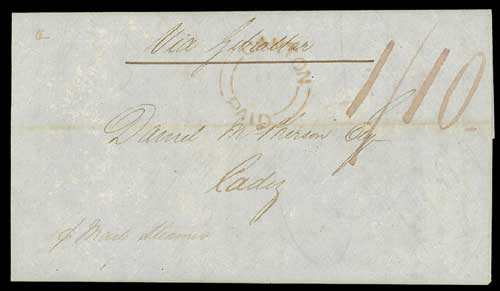 Via Gibraltar
PAID
1/10
Daniel McPherson Esq
Cadiz
p Mail Steamer